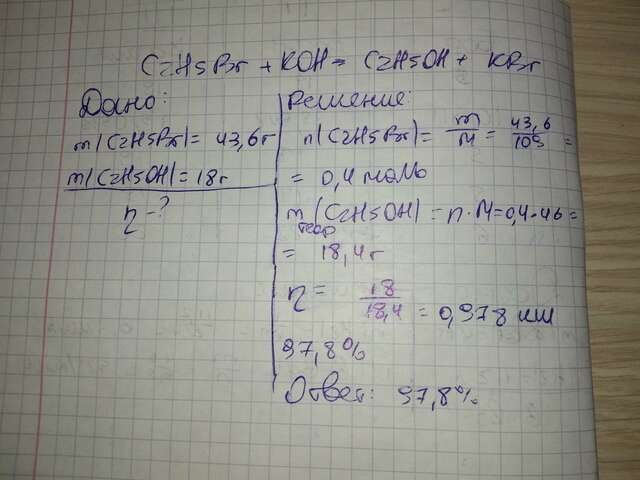 C2H5Br + KOH = C2H5OH + KBr
Дано:
m(C2H5Br) = 43,6г
m(C2H5OH) = 18г
η - ?
Решение:
n(C2H5Br) = m/M = 43,6/109 =
= 0,4 моль
m теор (C2H5OH) = n · M = 0,4 · 46 =
= 18,4г
η = 18/18,4 = 0,978 или
97,8%
Ответ: 97,8%